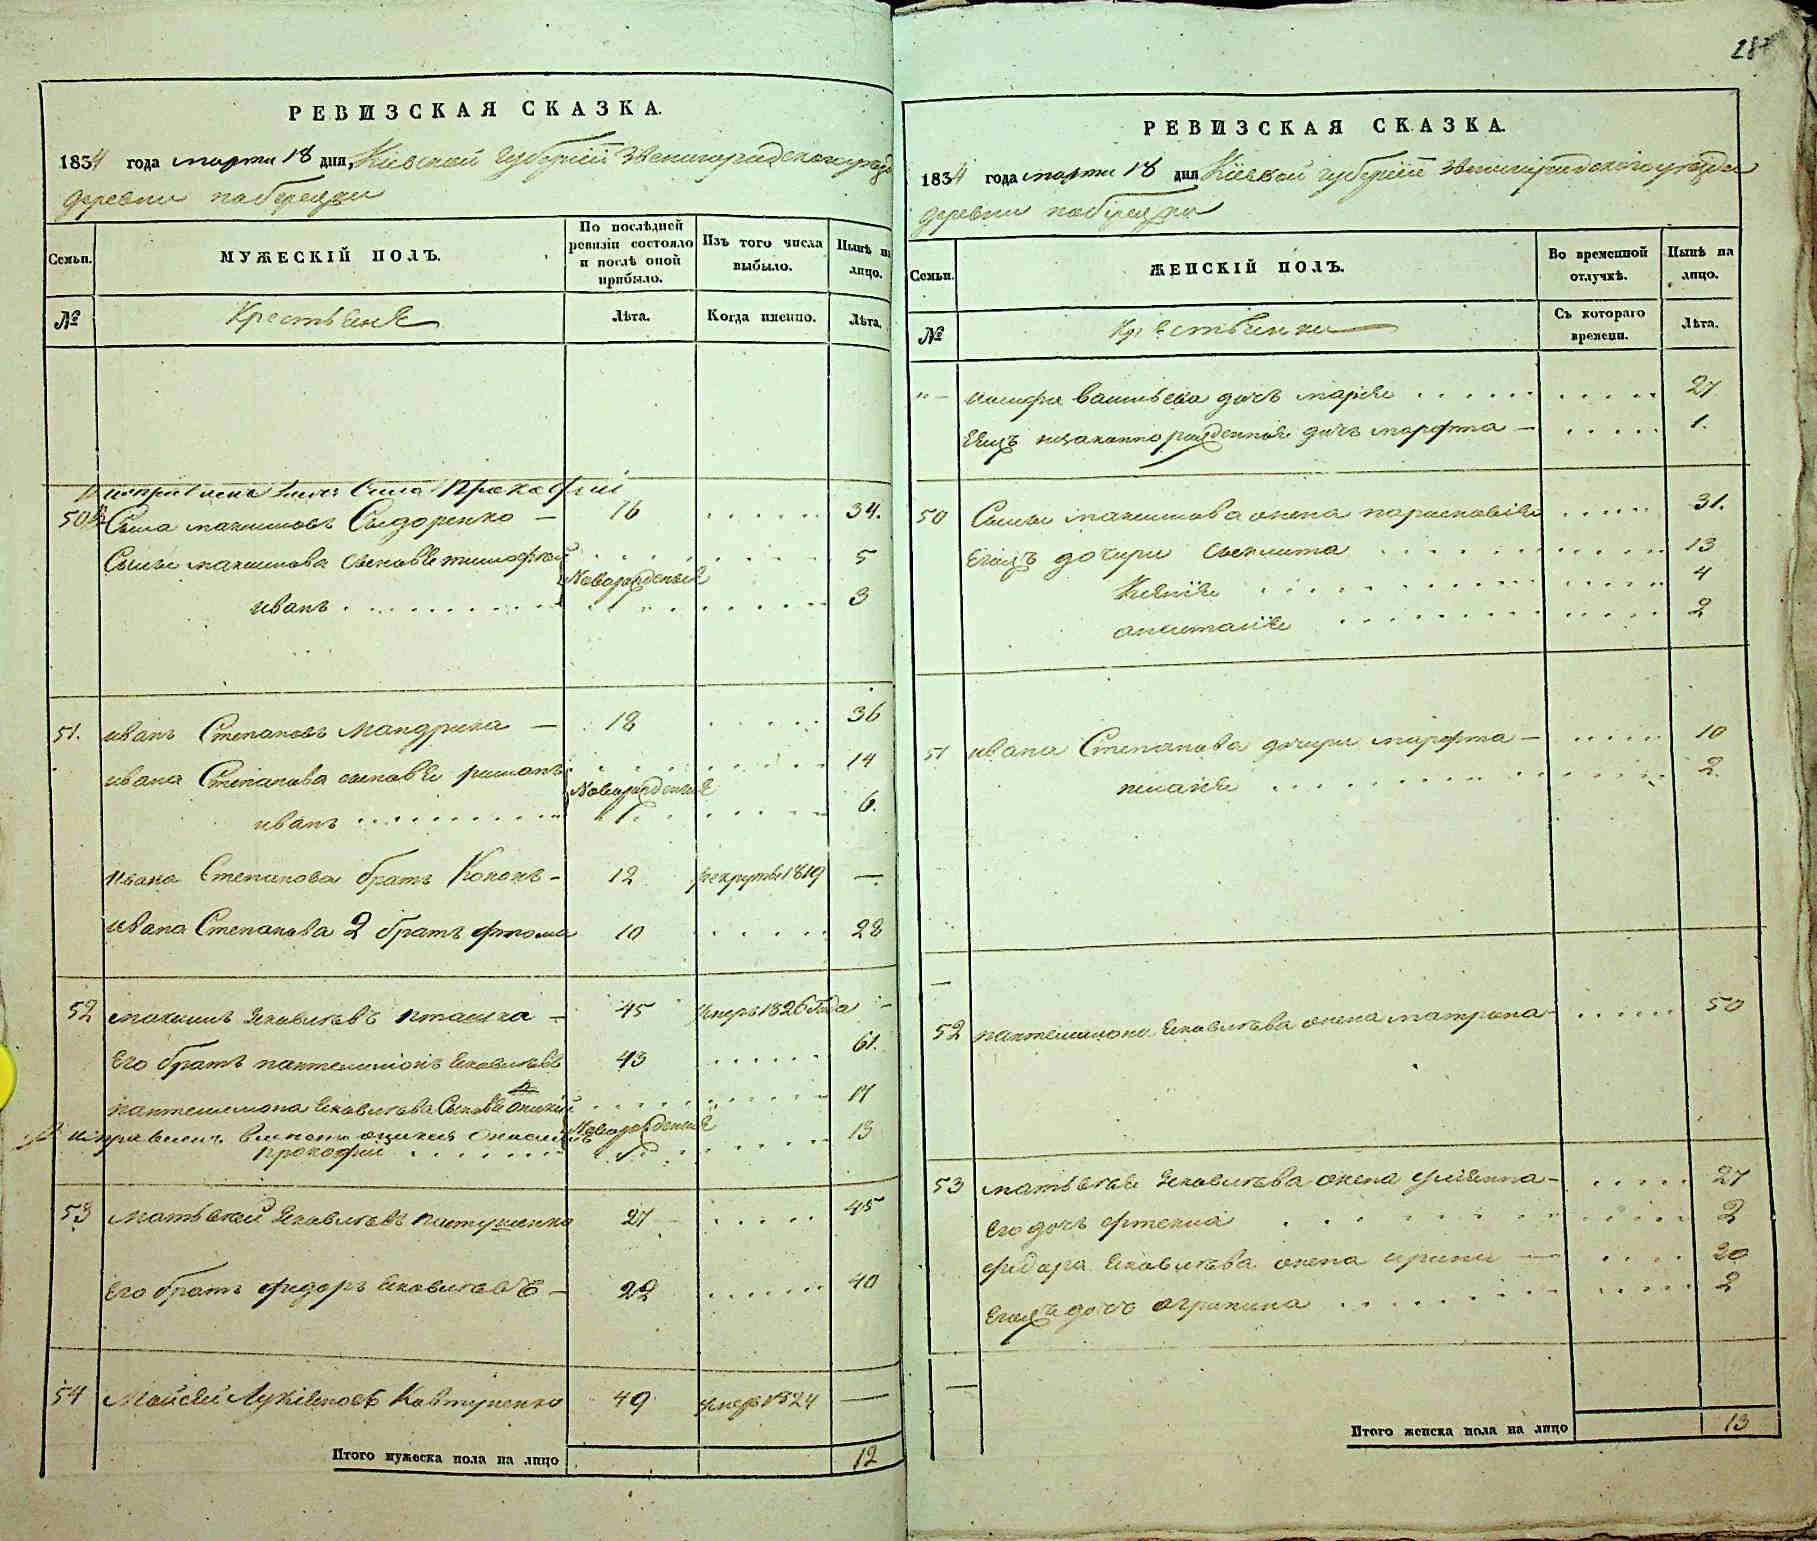 РЕВИЗСКАЯ СКАЗКА.
1834 года марта 18 дня, Кіевской Губерніи Звенигородскаго уезда
деревни
Семьи.
МУЖЕСКІЙ ПОЛЪ.
По послѣдней ревизіи состояло и послѣ оной прибыло.
Изъ того числа выбыло.
Нынѣ на лицо.
№
Крестьяне
Лѣта.
Когда именно.
Лѣта.
50 Сила Максимовъ Сидоренко — 16 34.
Силы Максимова сыновье Тимофей 5
Новорожденые
иванъ 3
51. иванъ Степановъ Мандрика — 18 36
ивана Степанова сыновье романъ 14
Новорожденые
иванъ 6.
ивана Степанова братъ Кононъ — 12 рекрутъ 1819 —
ивана Степанова 2 братъ фтома 10 28
52 максимъ Яковлевъ пташка — 45 умеръ 1826 Года —
Его братъ пантелимонъ Яковлевъ 43 61.
пантелимона Яковлева Сыновье 17
Новорожденые
прокофий 13
53 матьвей Яковлевъ пастушенко 27 45
Его братъ фидоръ Яковлевъ — 22 40
54 Мойсей Лукяновъ Ковтуненко 49 умеръ 1824 —
Итого мужеска пола на лицо 12
РЕВИЗСКАЯ СКАЗКА.
1834 года марта 18 дня Кіевской Губерніи Звенигородскаго уезда
деревни
Семьи.
ЖЕНСКІЙ ПОЛЪ.
Во временной отлучкѣ.
Нынѣ на лицо.
№
Крестьянки
Съ котораго времени.
Лѣта.
" — васильева дочь марія 27
незаконно рожденная дочь марфта — 1.
50 Силы максимова жена параскавія 31.
Егожъ дочери 13
Ксенія 4
анастасія 2
51 ивана Степанова дочери марфта — 10
2.
52 пантелимона Яковлева жена матрона — 50
53 матьвея Яковлева жена улянна — 27
Его дочь фтекла 2
фидора Яковлева жена ирина — 20
Егожъ дочь 2
Итого женска пола на лицо 13